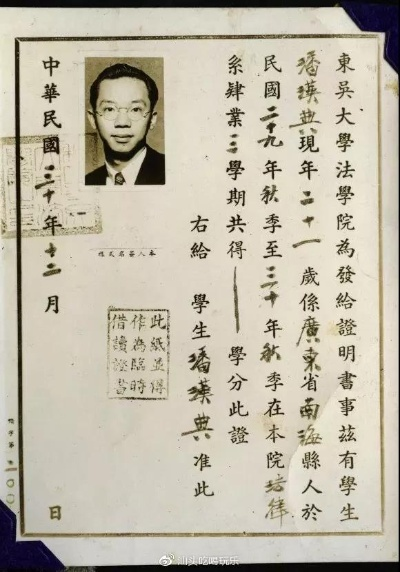 東吳大學法學院為發給證明書事茲有學生
潘漢典現年二十一歲係廣東省南海縣人於
民國二十九年秋季至三十年秋季在本院法律
系肄業三學期共得 學分此證
右給 學生潘漢典准此
本人簽名式樣
此紙並得
作為臨時
借讀證書
中華民國三十年十二月 日
汕头吃喝玩乐